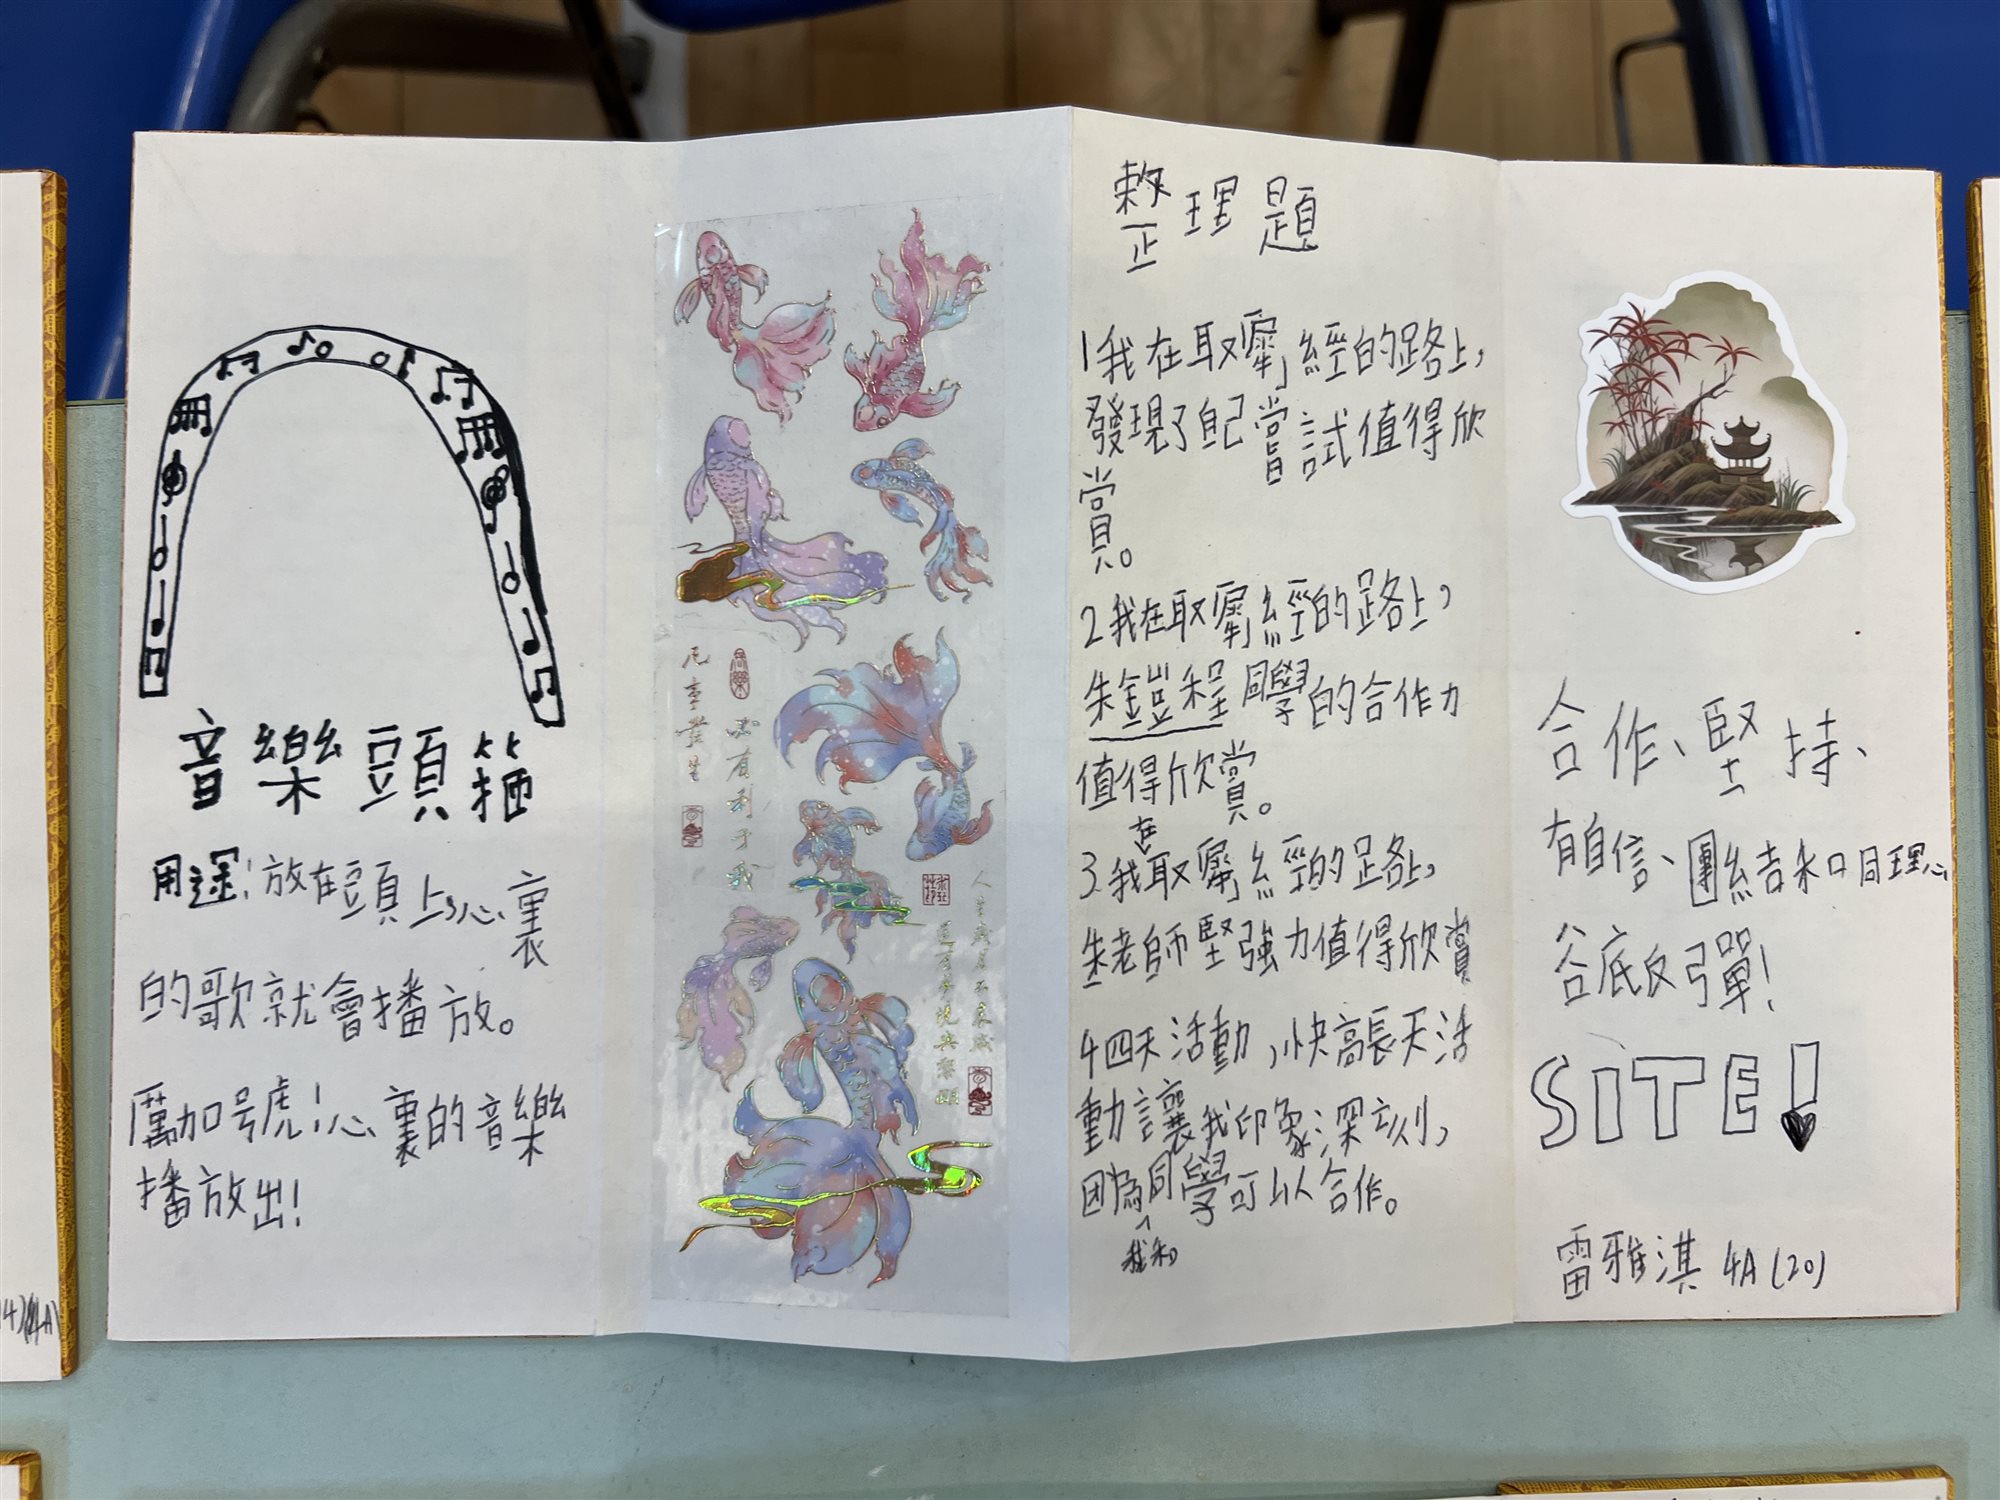 音樂頭箍
用途:放在頭上,心裏
的歌就會播放。
厲加號!心裏的音樂
播放出!
凡事發生
必有利于我
整理題
1我在取勵經的路上,
發現了自己嘗試值得欣
賞。
2我在取勵經的路上,
朱鎧程同學的合作力
值得欣賞。
3.我在取勵經的路上,
朱老師堅強力值得欣賞
4四天活動,快高長天活
動讓我印象深刻,
因為我和同學可以合作。
合作、堅持、
有自信、團結和同理心
谷底反彈!
SITE!
雷雅淇 4A(20)